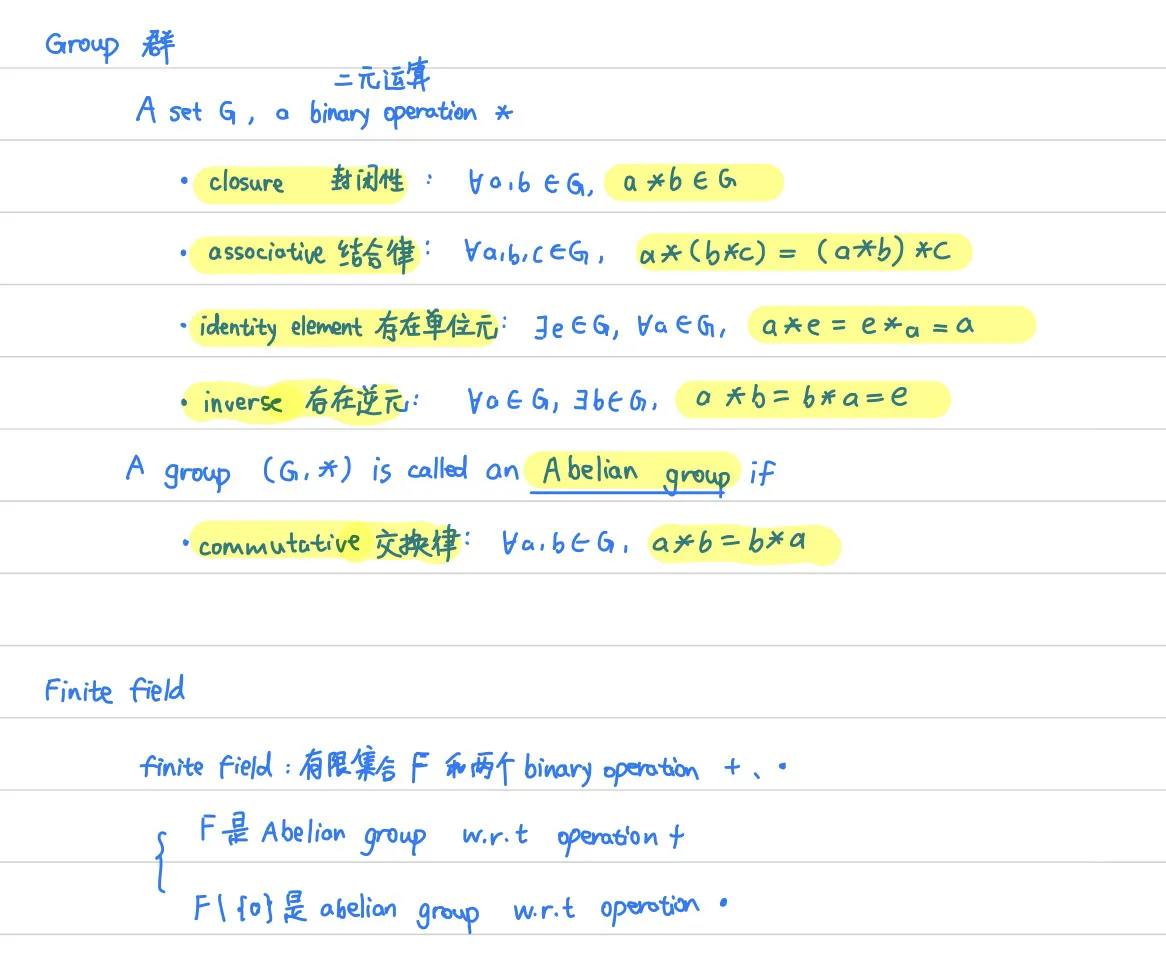 Group 群
二元运算
A set G, a binary operation *
• closure 封闭性: ∀a,b∈G, a*b∈G
• associative 结合律: ∀a,b,c∈G, a*(b*c) = (a*b)*c
• identity element 存在单位元: ∃e∈G, ∀a∈G, a*e = e*a = a
• inverse 存在逆元: ∀a∈G, ∃b∈G, a*b = b*a = e
A group (G,*) is called an Abelian group if
• commutative 交换律: ∀a,b∈G, a*b = b*a
Finite field
finite field: 有限集合 F 和两个 binary operation +、•
F是 Abelian group w.r.t operation +
F\{0}是 abelian group w.r.t operation •